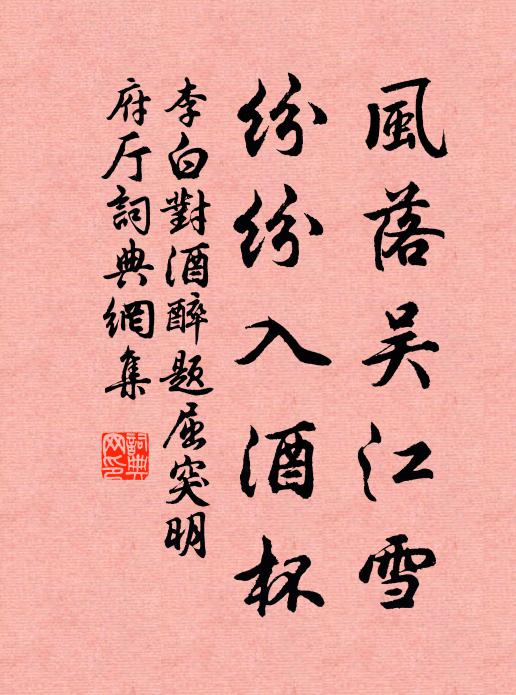 風落吴江雪
紛紛入酒杯
李白對酒醉題屈突明
府厅詞典網集
詞典网印